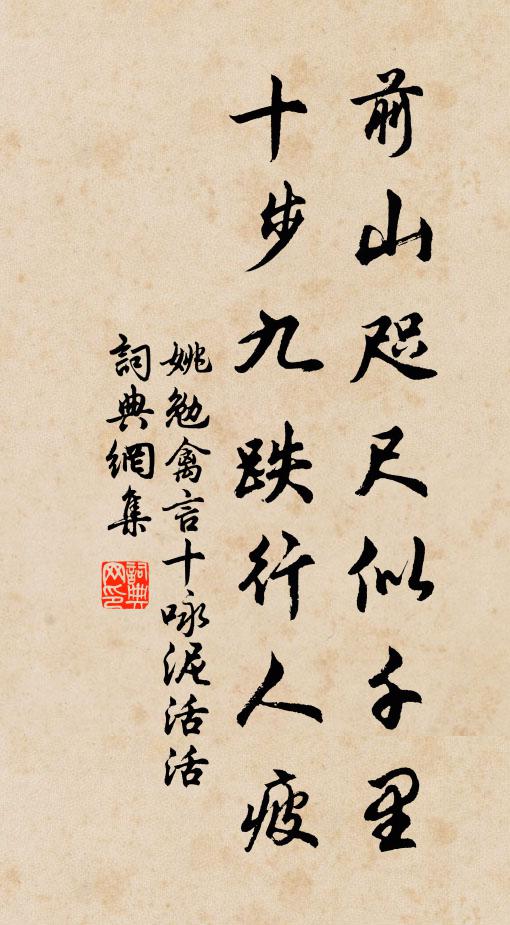 前山咫尺似千里
十步九跌行人疲
姚勉禽言十咏泥活活
詞典網集
詞典网印